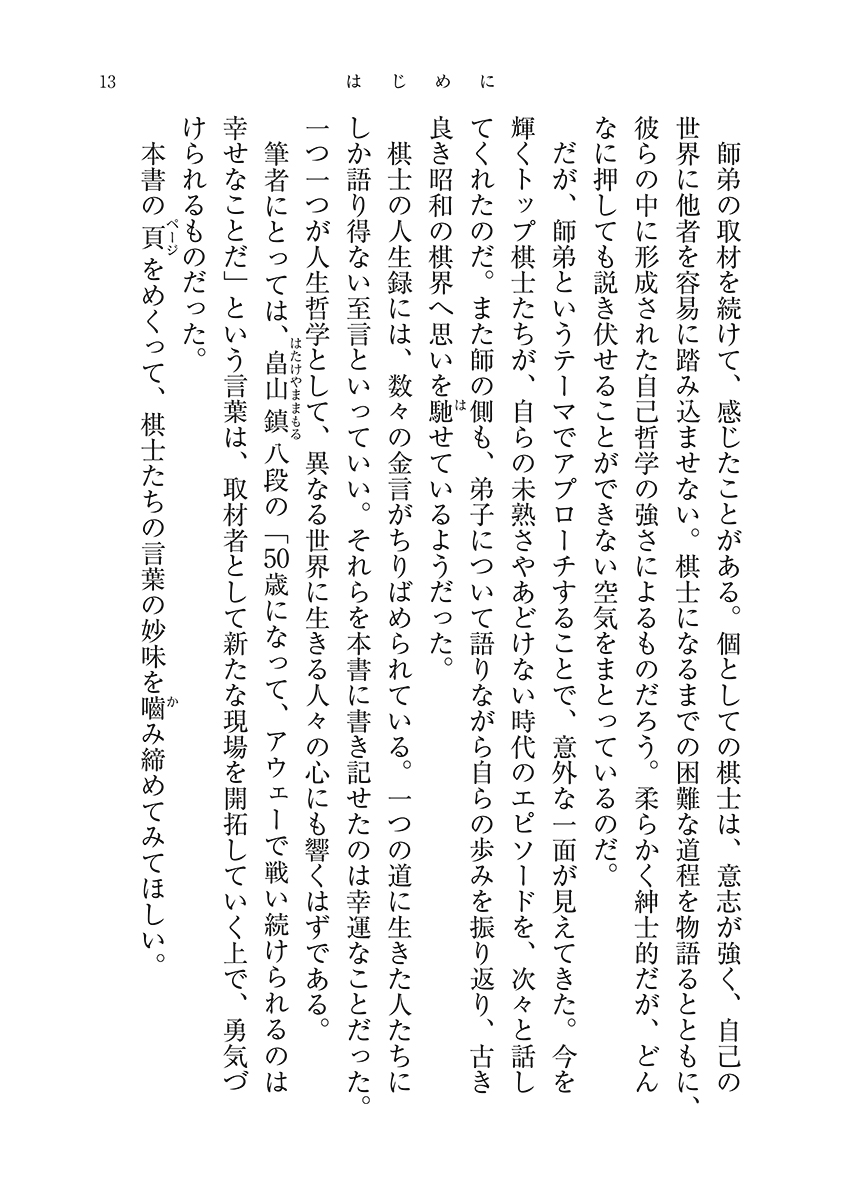 13
はじめに
師弟の取材を続けて、感じたことがある。個としての棋士は、意志が強く、自己の
世界に他者を容易に踏み込ませない。棋士になるまでの困難な道程を物語るとともに、
彼らの中に形成された自己哲学の強さによるものだろう。柔らかく紳士的だが、どん
なに押しても説き伏せることができない空気をまとっているのだ。
だが、師弟というテーマでアプローチすることで、意外な一面が見えてきた。今を
輝くトップ棋士たちが、自らの未熟さやあどけない時代のエピソードを、次々と話し
てくれたのだ。また師の側も、弟子について語りながら自らの歩みを振り返り、古き
良き昭和の棋界へ思いを馳せているようだった。
は
棋士の人生録には、数々の金言がちりばめられている。一つの道に生きた人たちに
しか語り得ない至言といっていい。それらを本書に書き記せたのは幸運なことだった。
一つ一つが人生哲学として、異なる世界に生きる人々の心にも響くはずである。
筆者にとっては、畠山鎮八段の「50歳になって、アウェーで戦い続けられるのは
はたけやままもる
幸せなことだ」という言葉は、取材者として新たな現場を開拓していく上で、勇気づ
けられるものだった。
本書の頁をめくって、棋士たちの言葉の妙味を嚙み締めてみてほしい。
ページ
か